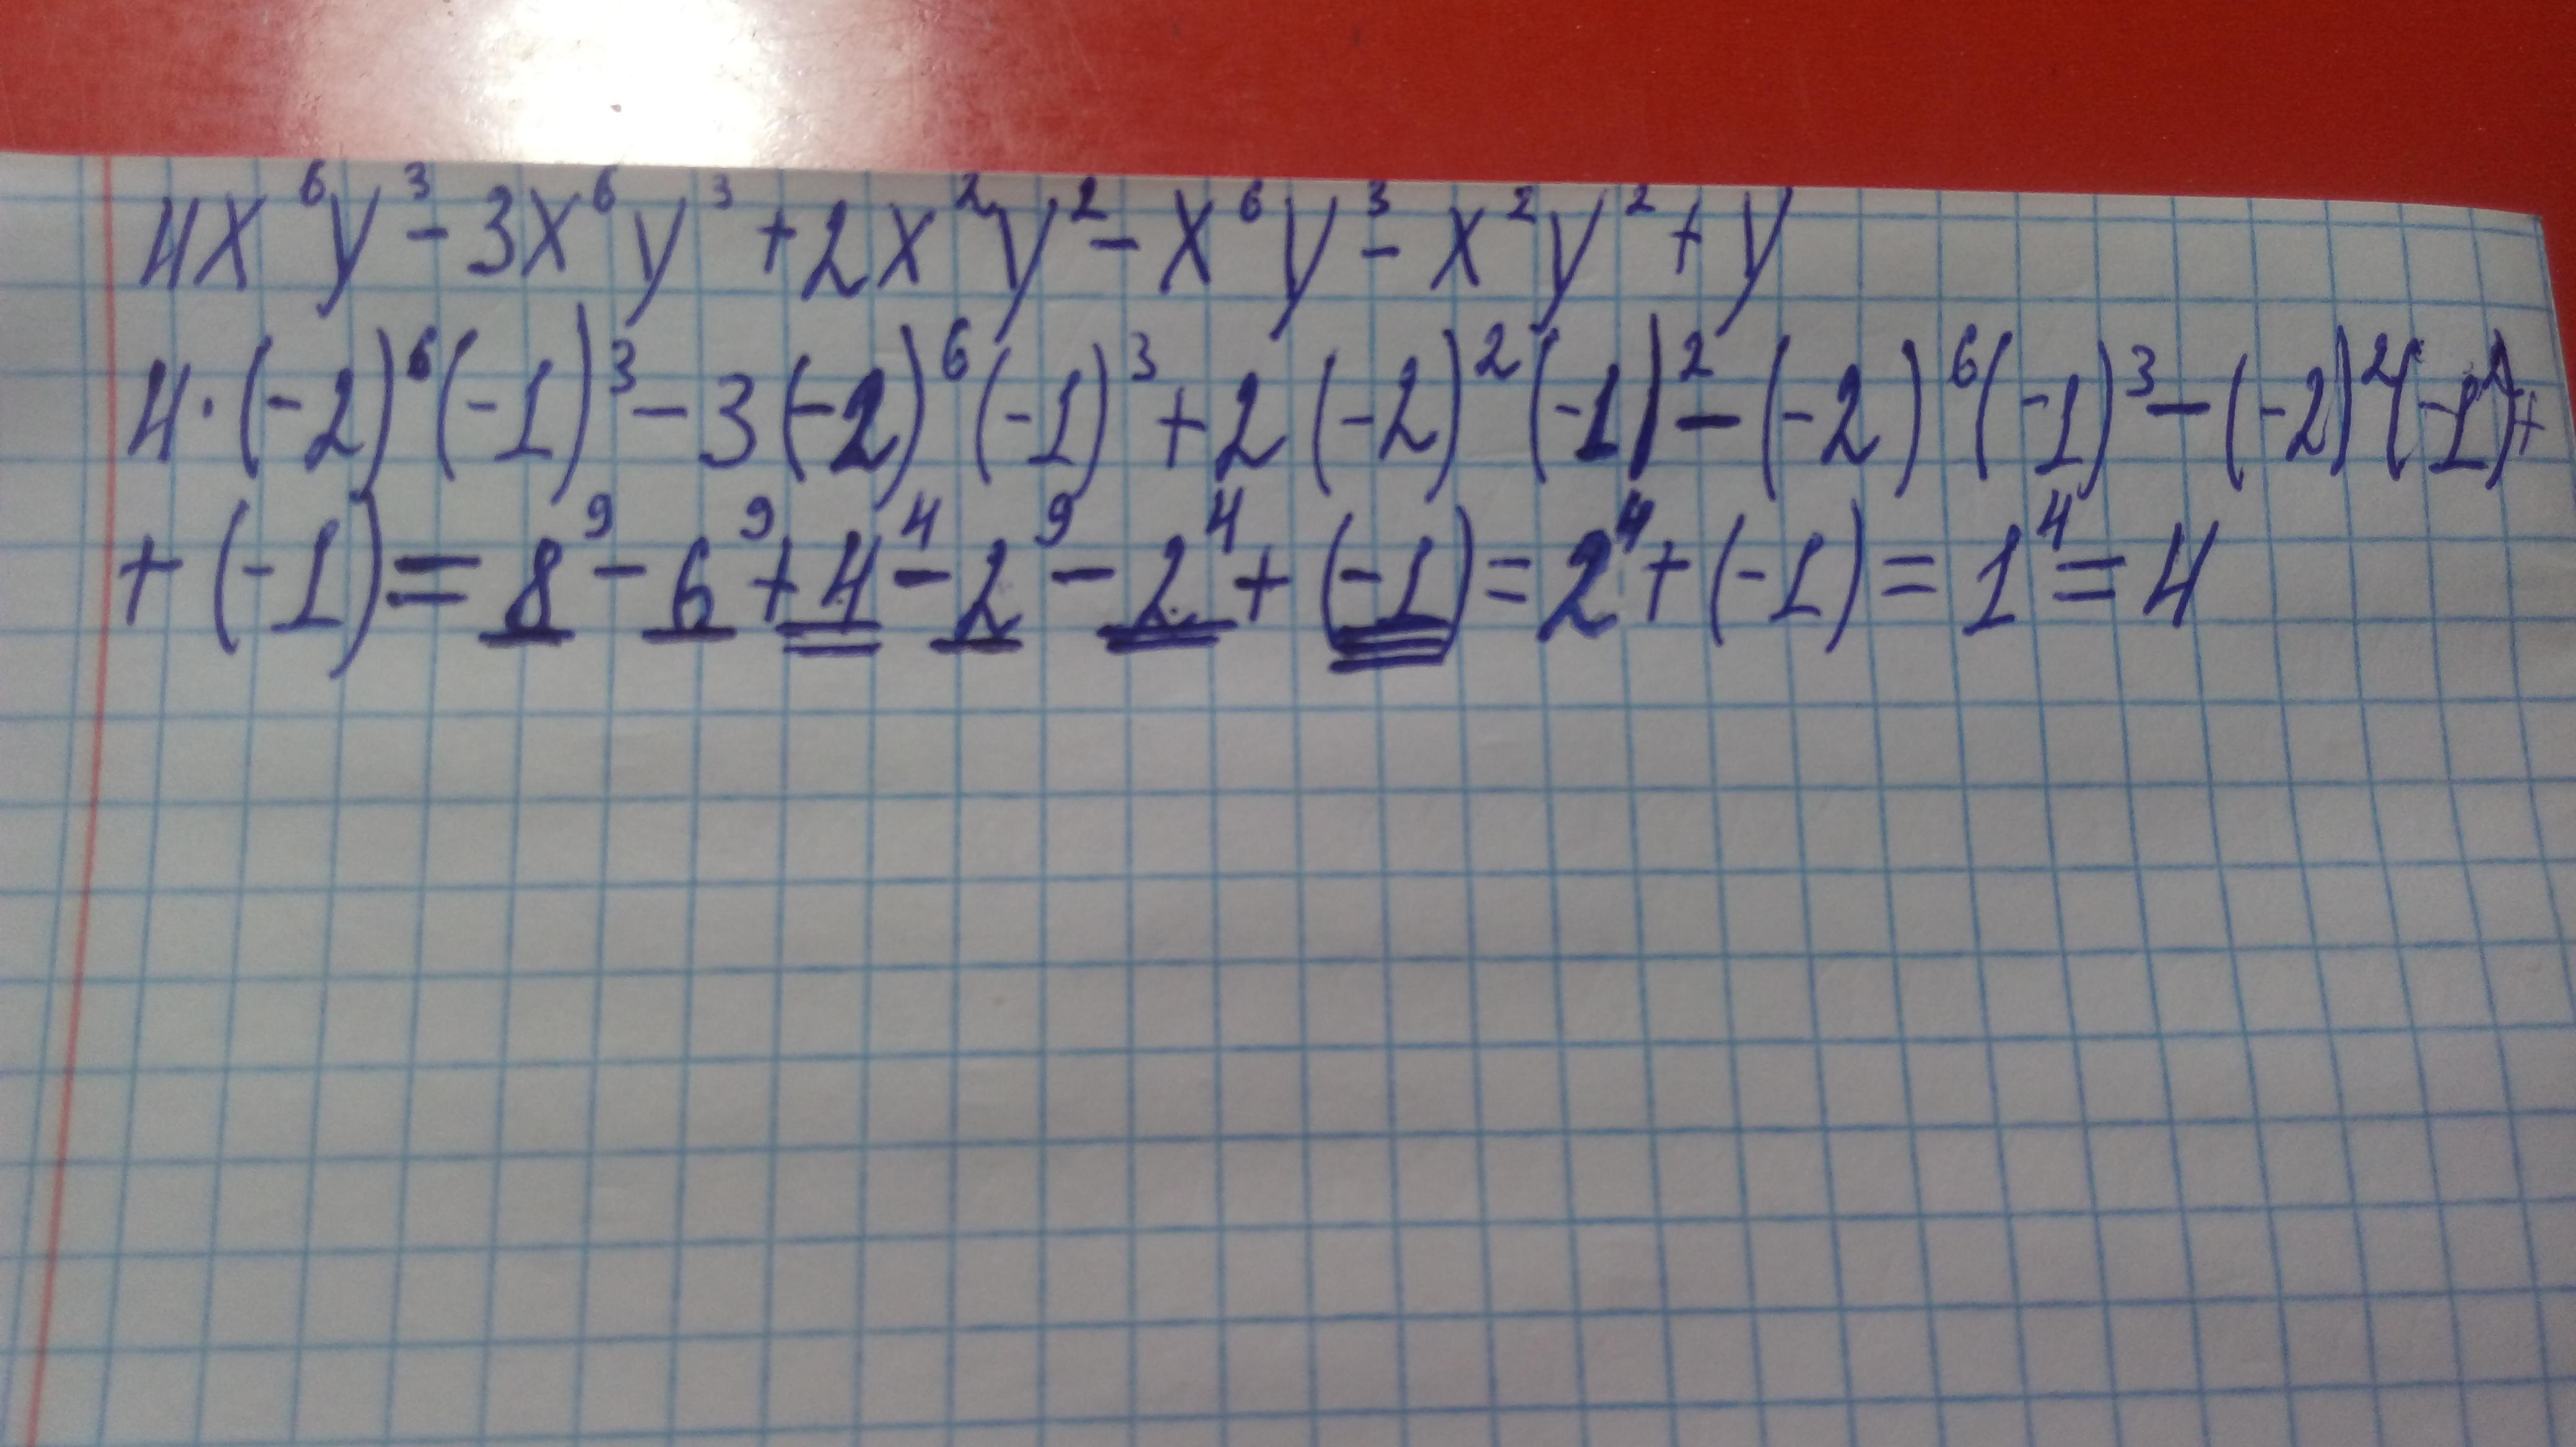 4x⁶y³-3x⁶y³+2x²y²-x⁶y³-x²y²+y
4·(-2)⁶(-1)³-3(-2)⁶(-1)³+2(-2)²(-1)²-(-2)⁶(-1)³-(-2)²(-1)²+
+(-1)=8⁹-6⁹+4⁴-2⁹-2⁴+(-1)=2⁴+(-1)=1⁴=4